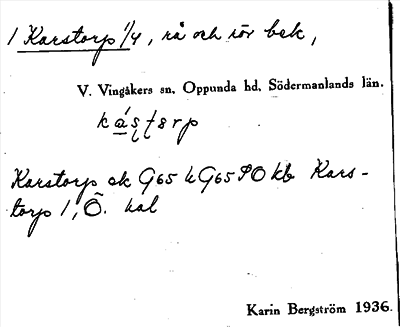 1 Karstorp 1/4, rå och rör bek,
V. Vingåkers sn, Oppunda hd, Södermanlands län.
Karstorp ek G65 k G65 SO kb Kars-
torp 1, Ö. hal
Karin Bergström 1936.